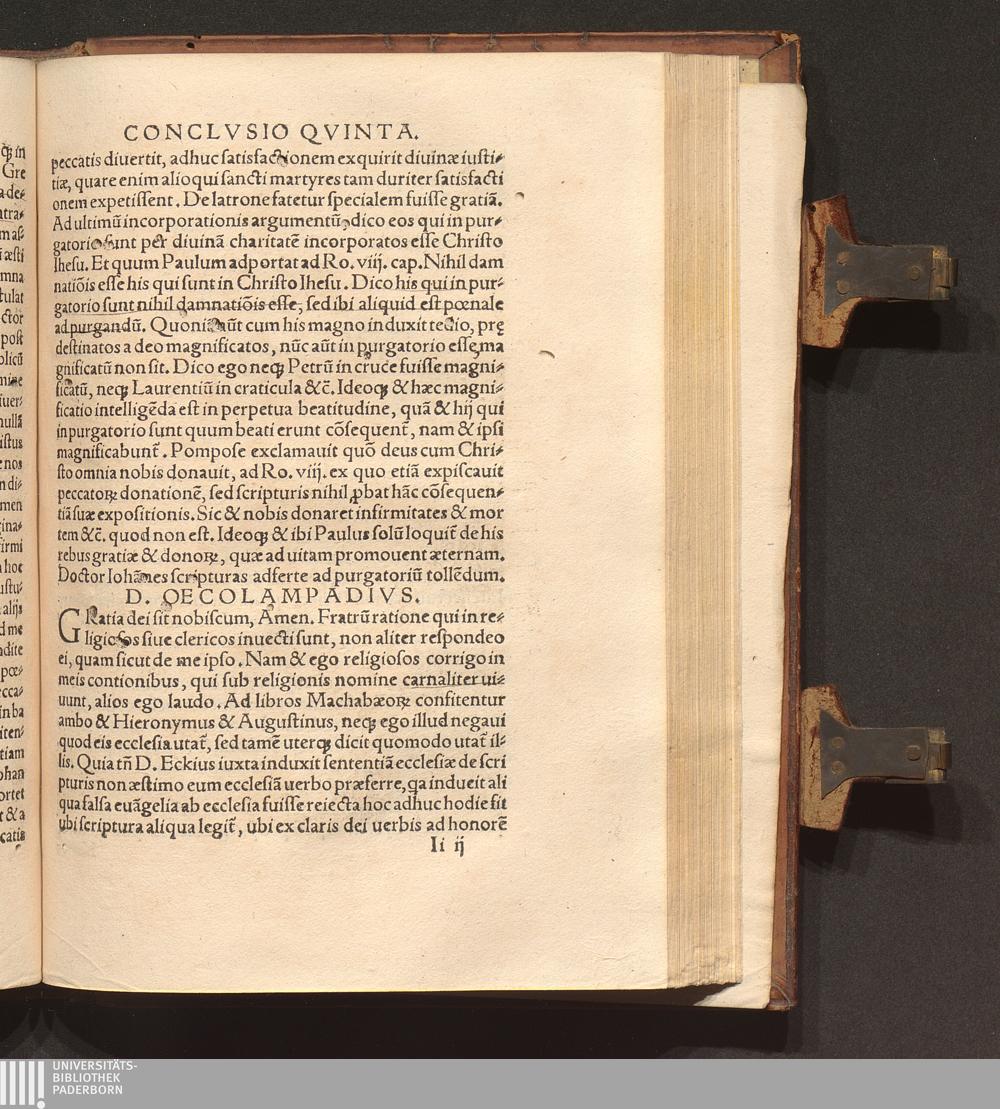 CONCLVSIO QVINTA.
peccatis diuertit, adhuc satisfactionem exquirit diuinæ iusti⸗
tiæ, quare enim alioqui sancti martyres tam duriter satisfacti
onem expetissent. De latrone fatetur specialem fuisse gratiã.
Ad ultimũ incorporationis argumentũ, dico eos qui in pur⸗
gatorio sunt per diuinã charitatẽ incorporatos esse Christo
Ihesu. Et quum Paulum adportat ad Ro. viij. cap. Nihil dam
natiõis esse his qui sunt in Christo Ihesu. Dico his qui in pur⸗
gatorio sunt nihil damnatiõis esse, sed ibi aliquid est pœnale
ad purgandũ. Quoniã aũt cum his magno induxit tedio, prę
destinatos a deo magnificatos, nũc aũt in purgatorio esse, ma
gnificatũ non sit. Dico ego neqȝ Petrũ in cruce fuisse magni⸗
ficatũ, neqȝ Laurentiũ in craticula &c̃. Ideoqȝ & hæc magni⸗
ficatio intelligẽda est in perpetua beatitudine, quã & hij qui
in purgatorio sunt quum beati erunt cõsequent̃, nam & ipsi
magnificabunt̃. Pompose exclamauit quõ deus cum Chri⸗
sto omnia nobis donauit, ad Ro. viij. ex quo etiã expiscauit
peccatoꝝ donationẽ, sed scripturis nihil ꝓbat hãc cõsequen⸗
tiã suæ expositionis. Sic & nobis donaret infirmitates & mor
tem &c̃. quod non est. Ideoqȝ & ibi Paulus solũ loquit̃ de his
rebus gratiæ & donoꝝ, quæ ad uitam promouent æternam.
Doctor Iohãnes scripturas adferte ad purgatoriũ tollẽdum.
D. OECOLAMPADIVS.
GRatia dei sit nobiscum, Amen. Fratrũ ratione qui in re⸗
ligiosos siue clericos inuecti sunt, non aliter respondeo
ei, quam sicut de me ipso. Nam & ego religiosos corrigo in
meis contionibus, qui sub religionis nomine carnaliter ui⸗
uunt, alios ego laudo. Ad libros Machabæoꝝ confitentur
ambo & Hieronymus & Augustinus, neqȝ ego illud negaui
quod eis ecclesia utat̃, sed tamẽ uterqȝ dicit quomodo utat̃ il⸗
lis. Quia tñ D. Eckius iuxta induxit sententiã ecclesiæ de scri
pturis non æstimo eum ecclesiã uerbo præferre, qa indueit ali
qua falsa euãgelia ab ecclesia fuisse reiecta hoc adhuc hodie fit
ubi scriptura aliqua legit̃, ubi ex claris dei uerbis ad honorẽ
Ii ij
UNIVERSITÄTS-
BIBLIOTHEK
PADERBORN